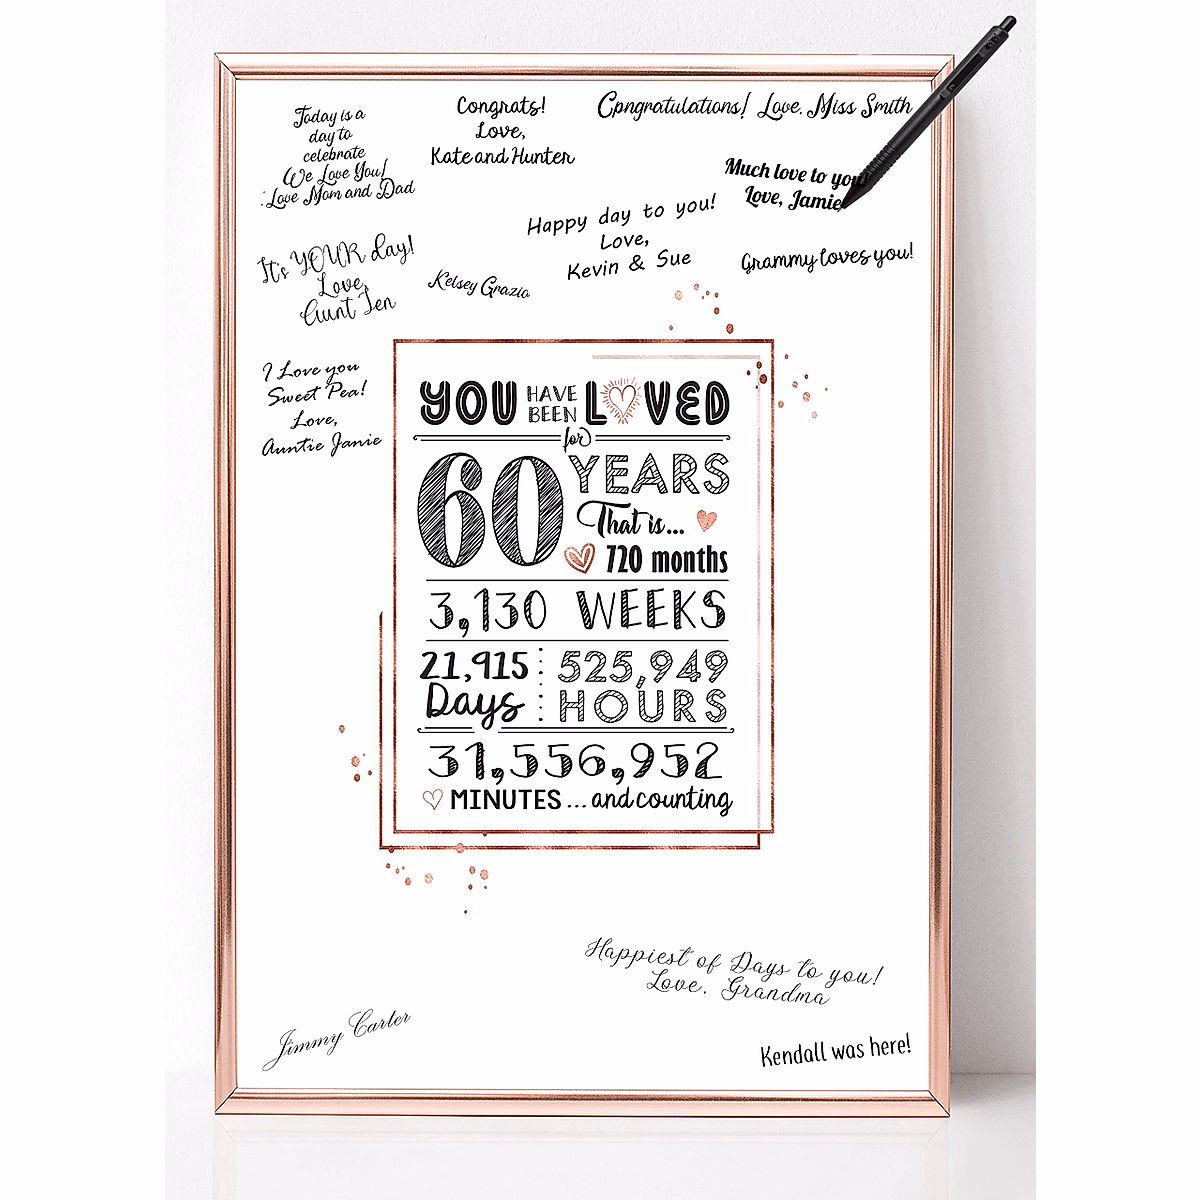 Today is a
day to
celebrate
We Love You!
Love Mom and Dad
Congrats!
Love,
Kate and Hunter
Congratulations! Love, Miss Smith
Much love to you!
Love, Jamie
Happy day to you!
Love,
Kevin & Sue
Grammy loves you!
It's YOUR day!
Love,
Aunt Jen
Kelsey Grazia
I Love you
Sweet Pea!
Love,
Auntie Janie
YOU HAVE BEEN LOVED
for
60 YEARS
That is...
720 months
3,130 WEEKS
21,915 Days
525,949 HOURS
31,556,952
MINUTES ... and counting
Happiest of Days to you!
Love, Grandma
Jimmy Carter
Kendall was here!